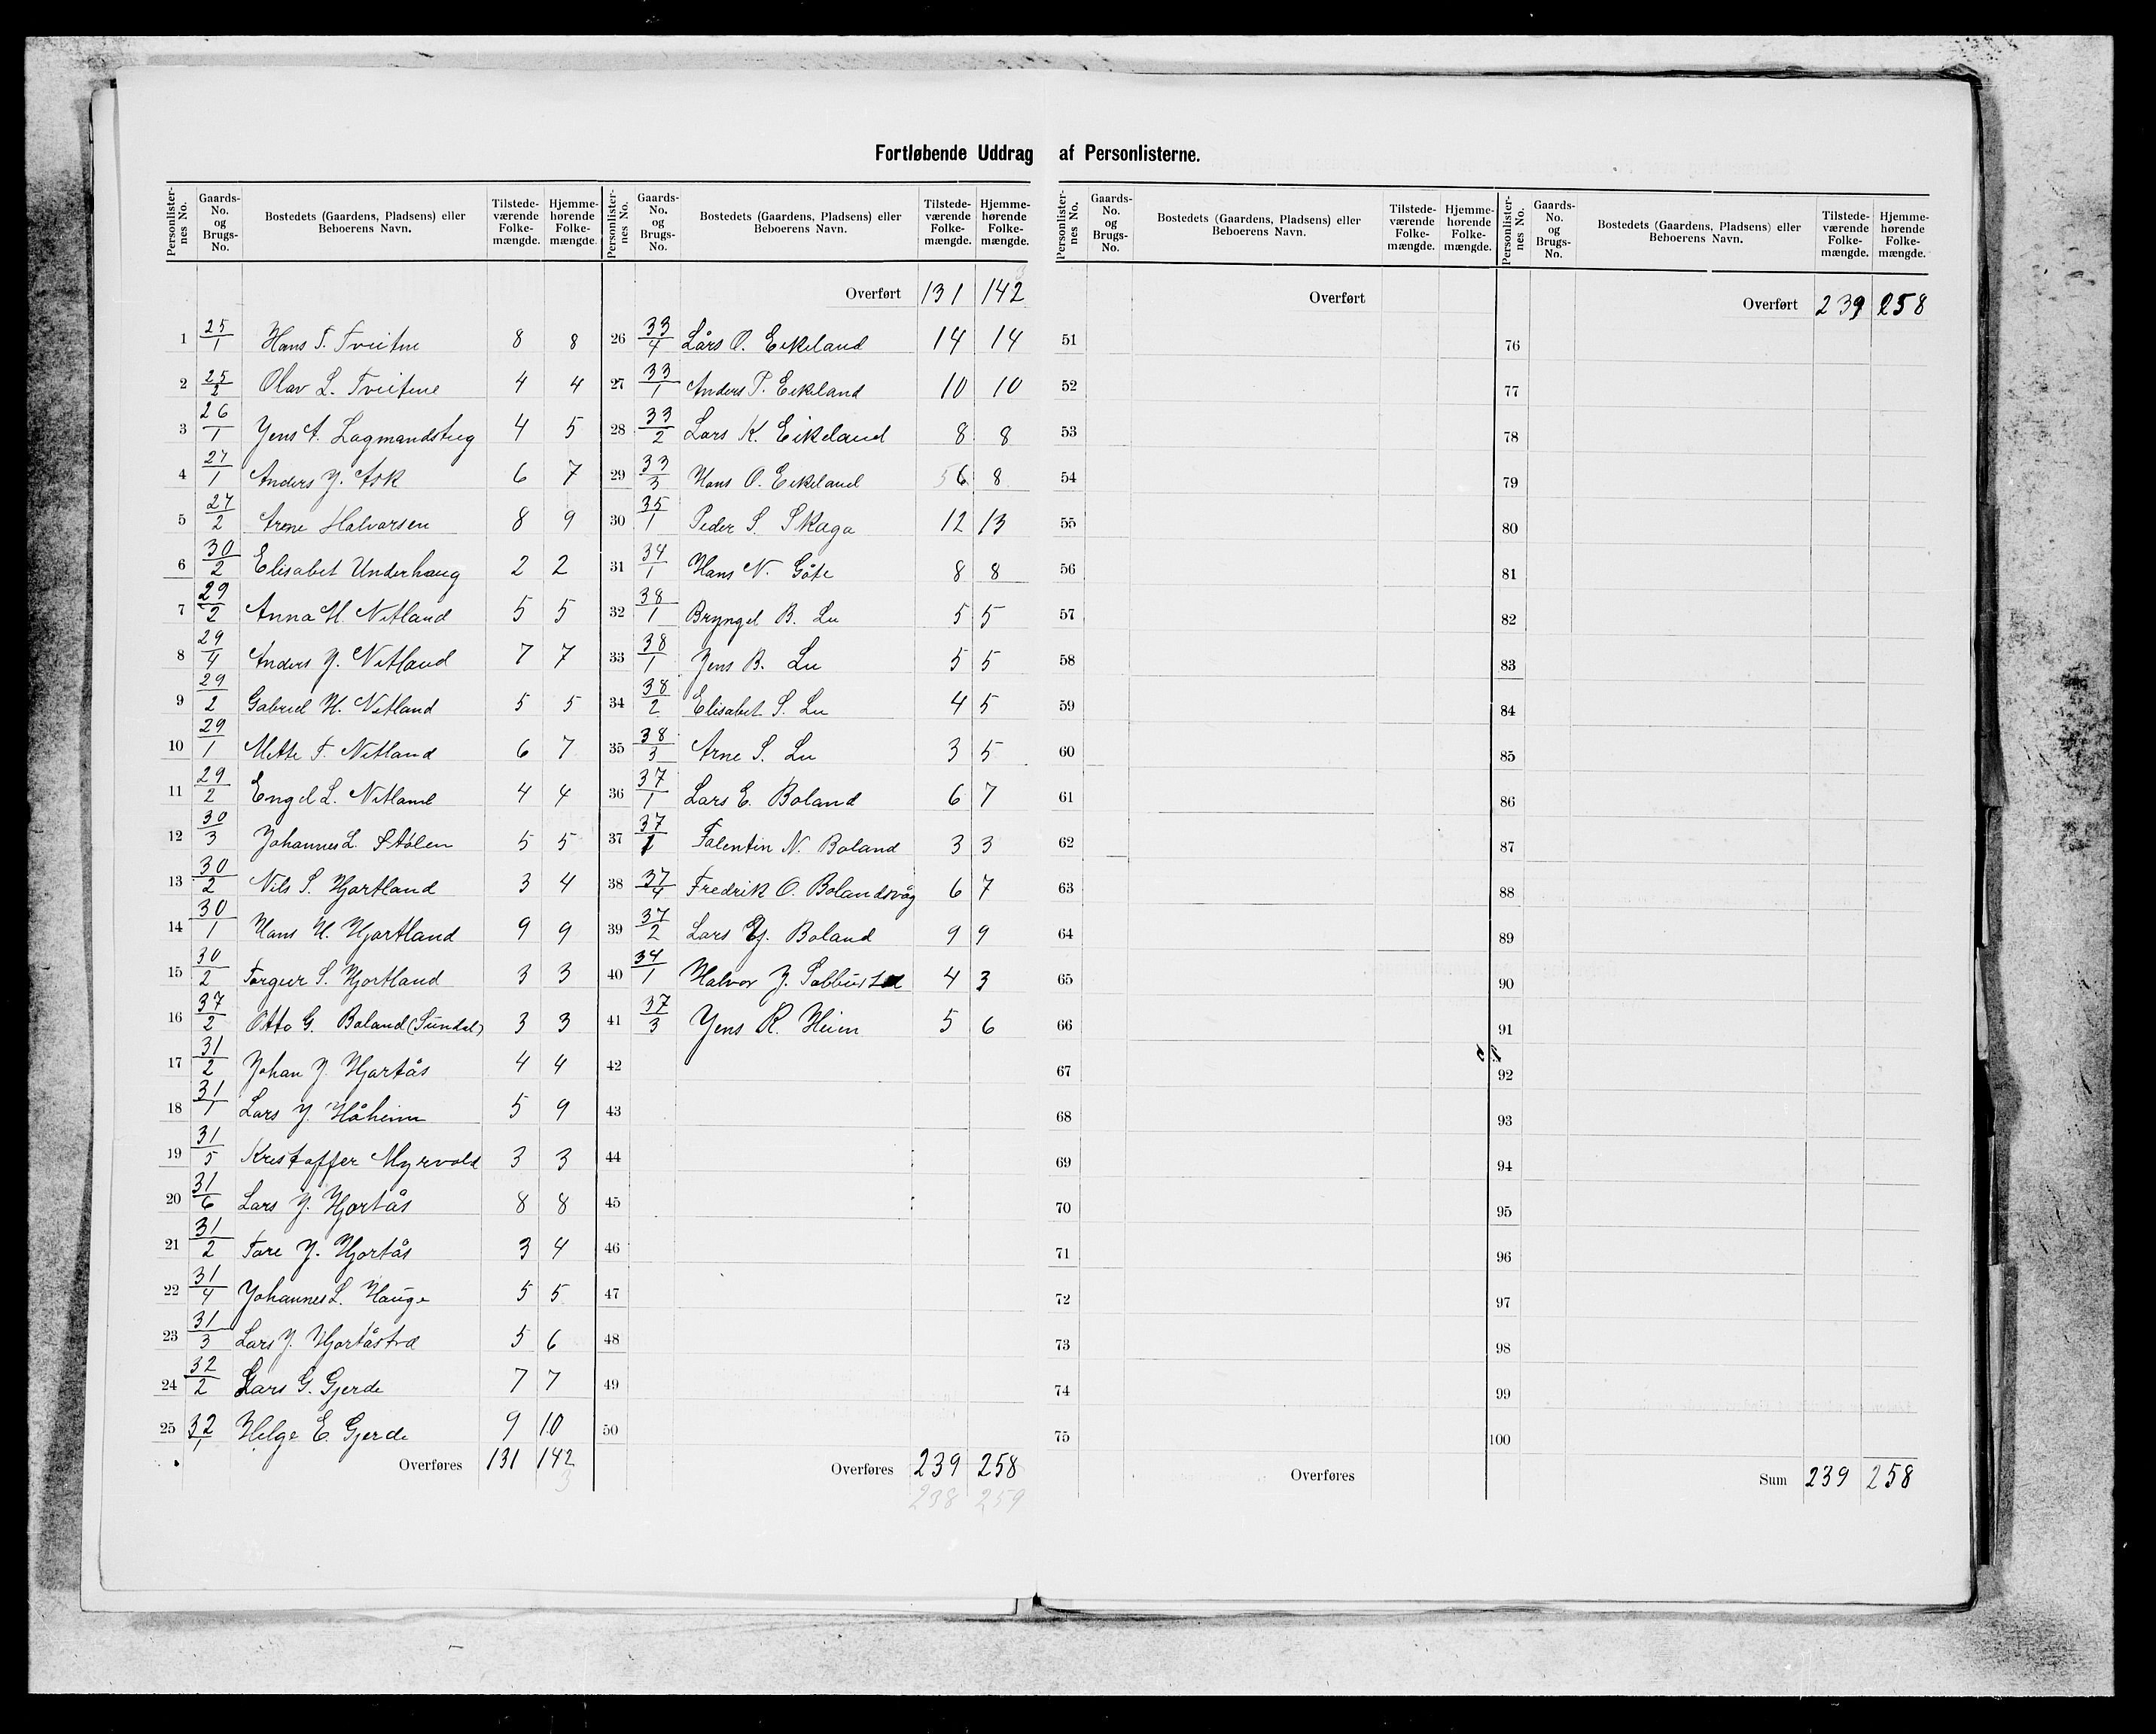 Fortløbende Uddrag af Personlisterne.
Personlister-nes No. Gaards-No. og Brugs-No. Bostedets (Gaardens, Pladsens) eller Beboerens Navn. Tilstede-værende Folke-mængde. Hjemme-hørende Folke-mængde.
1 25/1 Hans T. Tveitne 8 8
2 25/2 Olav L. Tveitne 4 4
3 26/1 Jens A. Lagmandstug 4 5
4 27/1 Anders J. Ask 6 7
5 27/2 Arne Halvorsen 8 9
6 30/2 Elisabet Underhaug 2 2
7 29/2 Anna H. Netland 5 5
8 29/4 Anders J. Netland 7 7
9 29/2 Gabriel H. Netland 5 5
10 29/1 Mette T. Netland 6 7
11 29/2 Engel L. Netland 4 4
12 30/3 Johannes L. Stølen 5 5
13 30/2 Nils S. Hjortland 3 4
14 30/1 Hans H. Hjortland 9 9
15 30/2 Torgeir S. Hjortland 3 3
16 37/2 Otto G. Boland (Sundal) 3 3
17 31/2 Johan J. Hjortås 4 4
18 31/1 Lars J. Håheim 5 9
19 31/5 Kristoffer Myrvold 3 3
20 31/6 Lars J. Hjortås 8 8
21 31/2 Tore J. Hjortås 3 4
22 31/4 Johannes L. Hauge 5 5
23 31/3 Lars J. Hjortåstræ 5 6
24 32/2 Lars G. Gjerde 7 7
25 32/1 Helge E. Gjerde 9 10
Overføres 131 142
3
Personlister-nes No. Gaards-No. og Brugs-No. Bostedets (Gaardens, Pladsens) eller Beboerens Navn. Tilstede-værende Folke-mængde. Hjemme-hørende Folke-mængde.
3
Overført 131 142
26 33/4 Lårs O. Eikeland 14 14
27 33/1 Anders P. Eikeland 10 10
28 33/2 Lars K. Eikeland 8 8
29 33/3 Hans O. Eikeland 5 6 8
30 35/1 Peder S. Skaga 12 13
31 34/1 Hans N. Gåte 8 8
32 38/1 Bryngel B. Lu 5 5
33 38/1 Jens B. Lu 5 5
34 38/2 Elisabet S. Lu 4 5
35 38/3 Arne S. Lu 3 5
36 37/1 Lars E. Boland 6 7
37 37/1 Falentin N. Boland 3 3
38 37/4 Fredrik O. Bolandsvåg 6 7
39 37/2 Lars Ej. Boland 9 9
40 34/1 Halvor J. 4 3
41 37/3 Jens R. Heien 5 6
42
43
44
45
46
47
48
49
50
Overføres 239 258
238 259
Personlister-nes No. Gaards-No. og Brugs-No. Bostedets (Gaardens, Pladsens) eller Beboerens Navn. Tilstede-værende Folke-mængde. Hjemme-hørende Folke-mængde.
Overført
51
52
53
54
55
56
57
58
59
60
61
62
63
64
65
66
67
68
69
70
71
72
73
74
75
Overføres
Personlister-nes No. Gaards-No. og Brugs-No. Bostedets (Gaardens, Pladsens) eller Beboerens Navn. Tilstede-værende Folke-mængde. Hjemme-hørende Folke-mængde.
Overført 239 258
76
77
78
79
80
81
82
83
84
85
86
87
88
89
90
91
92
93
94
95
96
97
98
99
100
Sum 239 258